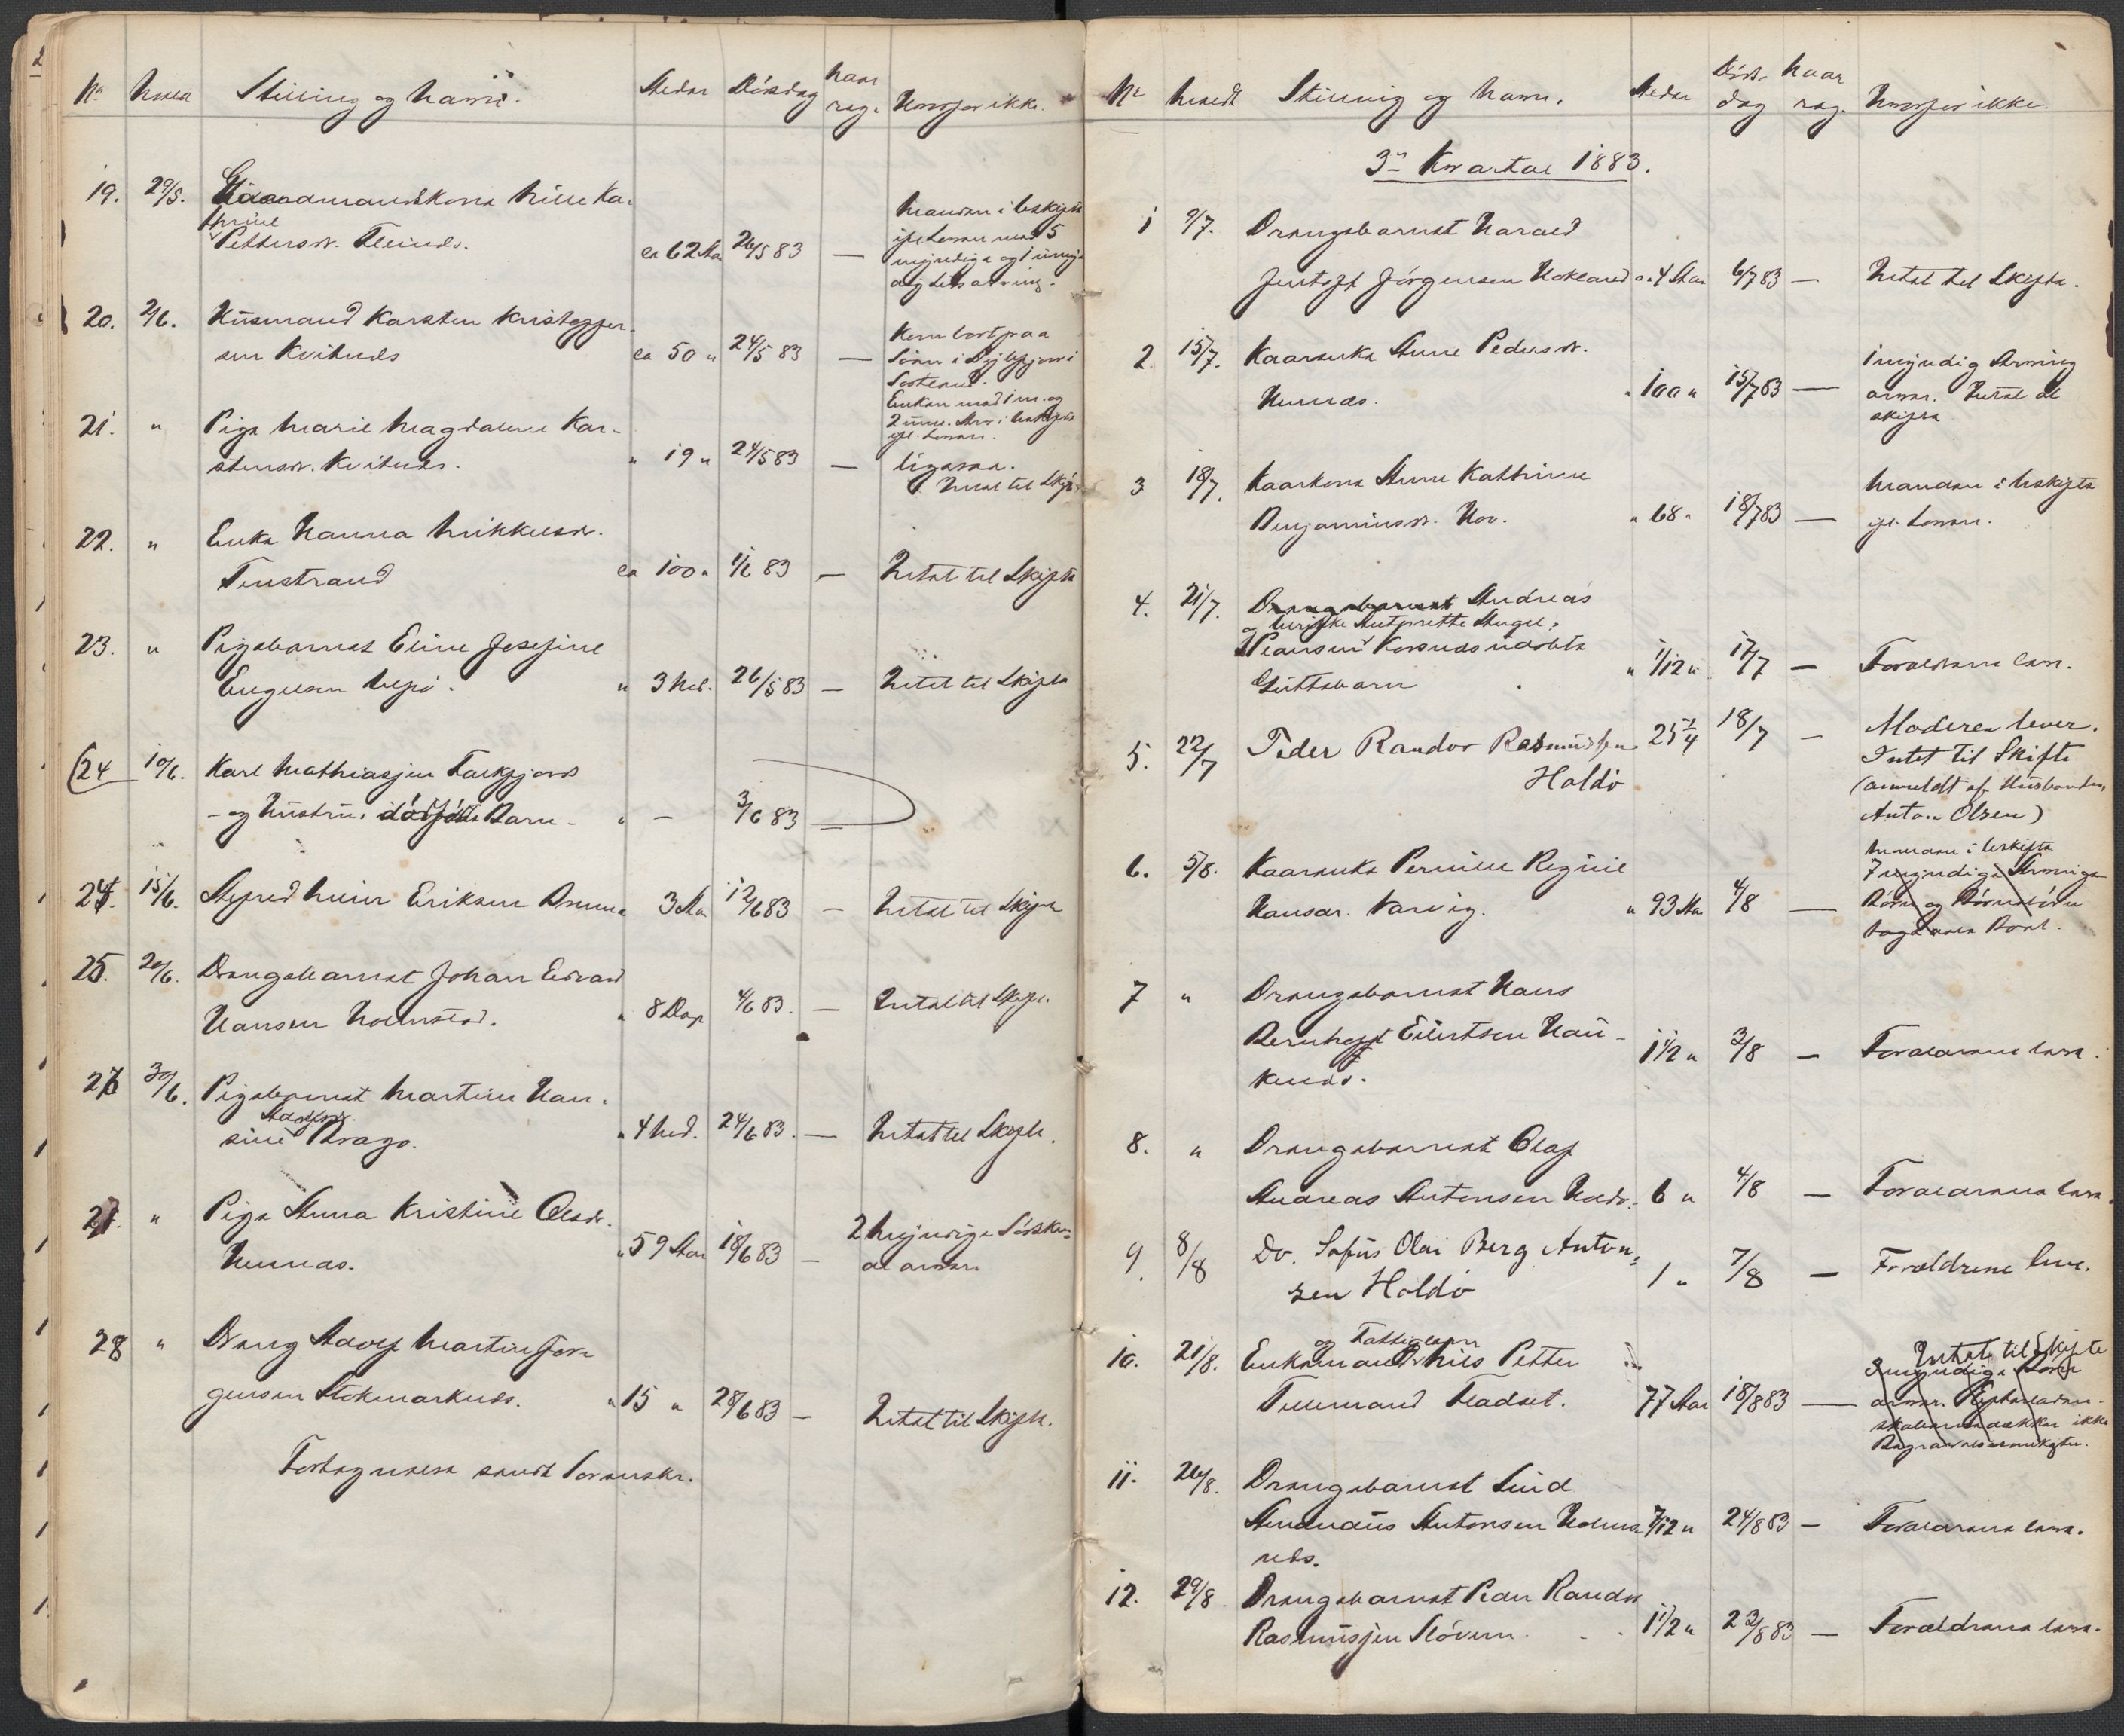 No
Stilling og Navn.
Alder
Dödsdag
Naar
reg.
Hvorfor ikke.
19. 29/5. Gaardmandskone
thrine
Pettersdr.
ca 62 Aar 26/5 83 —
Manden i uskiftet
med 5
myndige og 1 umyn-
dig
20. 2/6. Husmand Karsten Kristoffer-
sen Kvitnes
ca 50 " 24/5 83 —
Kom bort paa
Enken med 1 m. og
2 umn.
21. " Pige Marie Magdalene Kar-
stensdr. Kvitnes.
" 19 " 24/5 83 —
Ligesaa.
Intet til Skifte
22. " Enke Hanna Mikkelsdr.
Finstrand
ca 100 " 1/6 83 — Intet til Skifte
23. " Pigebarnet Eline Josefine
Engelsen Ulvö.
" 3 Md. 26/5 83 — Intet til Skifte
(24 10/6. Karl Mathiassen Falkfjord
- og Hustrus dödfödte Barn -
" — 3/6 83 —
24. 15/6. Alfred Meier Eriksen
3 Aar 12/6 83 — Intet til Skifte
25. 20/6. Drengebarnet Johan Edvard
Hansen Holmstad.
" 8 Dage 4/6 83. — Intet til Skifte.
26 30/6. Pigebarnet Martine Han-
sine
" 4 Md. 24/6 83. — Intet til Skifte.
27. " Pige Anna Kristine Olsdr.
Hennes.
" 59 Aar 18/6 83 —
2 myndige Södsken-
de arver
28 " Dreng Adolf Martin Jör-
gensen Stokmarknes.
" 15 " 28/6 83 — Intet til Skifte.
Fortegnelse sendt Sorenskr.
No
Meldt
Stilling og Navn.
Alder
Döds-
dag
Naar
reg.
Hvorfor ikke.
3die Kvartal 1883.
1 9/7. Drengebarnet Harald
Jentoft Jörgensen Hokland
4 Aar 6/7 83 — Intet til Skifte.
2. 15/7. Kaarenke Anne Pedersdr.
Hennes.
" 100 " 15/7 83 —
1 myndig Arving
arver. Intet at
skifte
3 18/7. Kaarkone Anne Kathrine
Benjaminsdr. Hov.
" 68 " 18/7 83 —
Manden i Uskifte
4. 21/7. Drengebarnet Andreas
Guttebarn
" 1/12 " 17/7 — Forældrene lever.
5. 22/7 Peder Randor Rasmussen
Holdö
25 1/4 18/7 —
Moderen lever.
Intet til Skifte
(anmeldt af Husbonden
Anton Olsen)
6. 5/8. Kaarenke Pernille Regine
Hansdr. Narvig.
" 93 Aar 4/8 —
Manden i Uskifte
7 myndige Arvinge
Börn og Börnebörn
7 " Drengebarnet Hans
Bernhoft Eilertsen Hau-
knes.
1 1/2 " 3/8 — Forældrene lever.
8. " Drengebarnet Olaf
Andreas Antonsen Holdö.
6 " 4/8 — Forældrene lever.
9. 8/8 Do. Sofus Olai Berg Anton-
sen Holdö
1 " 7/8 — Forældrene leve.
10. 21/8. og Fattiglem
Enkemand Nils Petter
Tillemand Fladset.
77 Aar 18/8 83 —
Intet til Skifte
3 myndige Börn
arver. Efterladen-
skaberne dækker ikke
Begravelsesomkostn.
11. 26/8. Drengebarnet
Antonsen Holms-
nes.
7/12 " 24/8 83 — Forældrene lever.
12. 29/8. Drengebarnet Peder Randor
Rasmussen
1 1/2 " 23/8 83 — Forældrene lever.